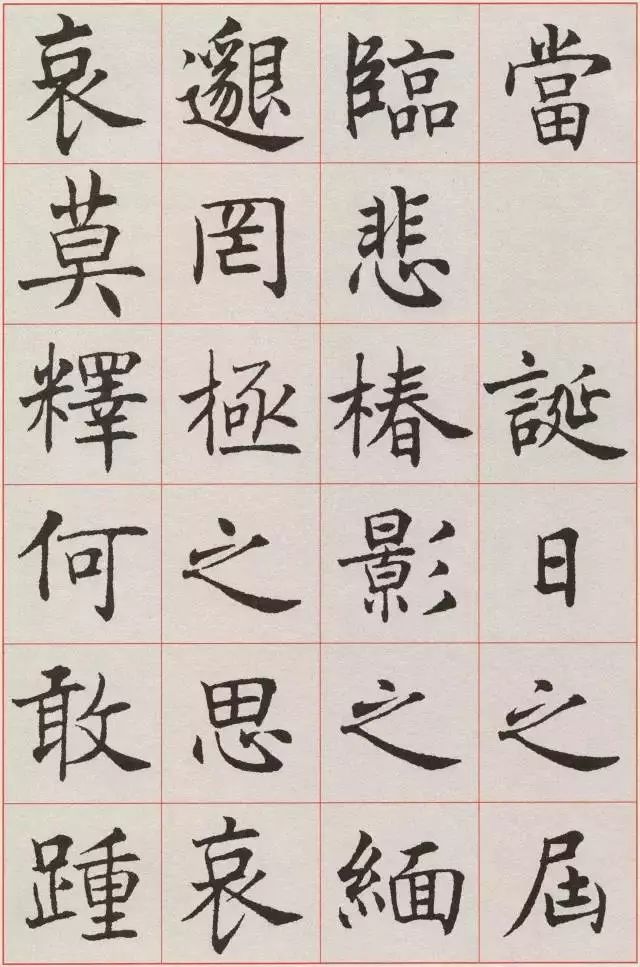 當誕日之屆
臨悲椿影之緬
邈罔極之思哀
哀莫釋何敢踵